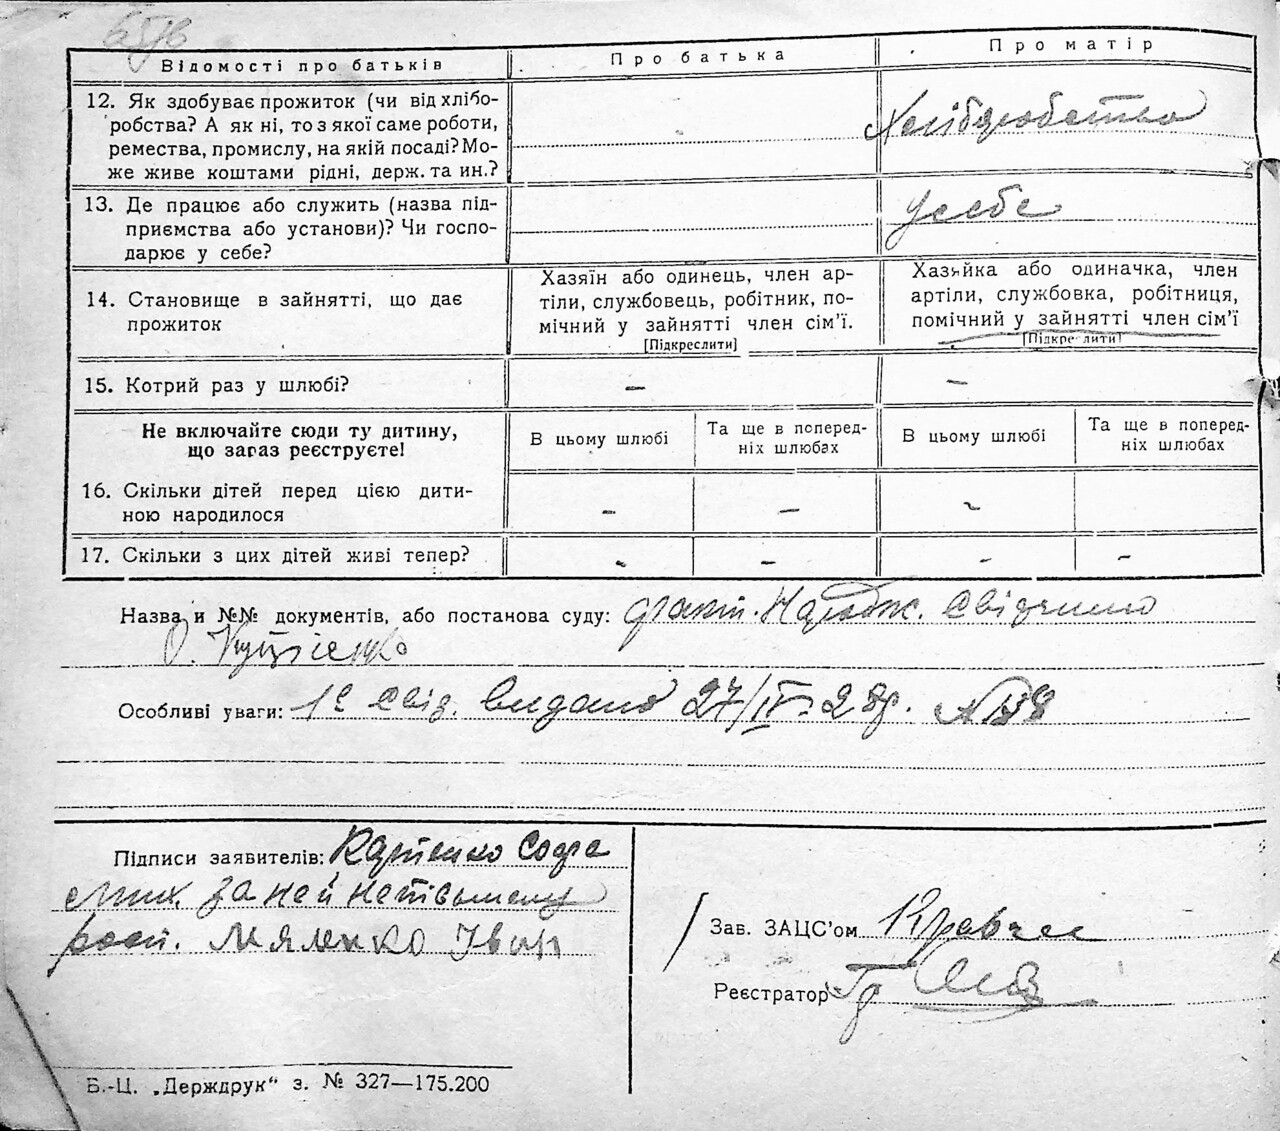 Відомості про батьків
Про батька
Про матір
12. Як здобуває прожиток (чи від хлібо-
робства? А як ні, то з якої саме роботи,
ремества, промислу, на якій посаді? Мо-
же живе коштами рідні, держ. та ин.?
Хліборобство
13. Де працює або служить (назва під-
приємства або установи)? Чи госпо-
дарює у себе?
у себе
14. Становище в зайнятті, що дає
прожиток
Хазяїн або одинець, член ар-
тіли, службовець, робітник, по-
мічний у зайнятті член сім’ї.
[Підкреслити]
Хазяйка або одиначка, член
артіли, службовка, робітниця,
помічний у зайнятті член сім’ї
[Підкреслити]
15. Котрий раз у шлюбі?
–
–
Не включайте сюди ту дитину,
що зараз реєструєте!
В цьому шлюбі
Та ще в поперед-
ніх шлюбах
В цьому шлюбі
Та ще в поперед-
ніх шлюбах
16. Скільки дітей перед цією дити-
ною народилося
– – –
17. Скільки з цих дітей живі тепер?
– – – –
Назва и №№ документів, або постанова суду: факт. Народж.
О.
Особливі уваги: 1е свід. видано 27/IV-28р. №
Підписи заявителів: Софія
Мих. за неї неписьмену
розп. Іван
Зав. ЗАЦС’ом
Реєстратор
Б.-Ц. „Держдрук“ з. № 327—175.200